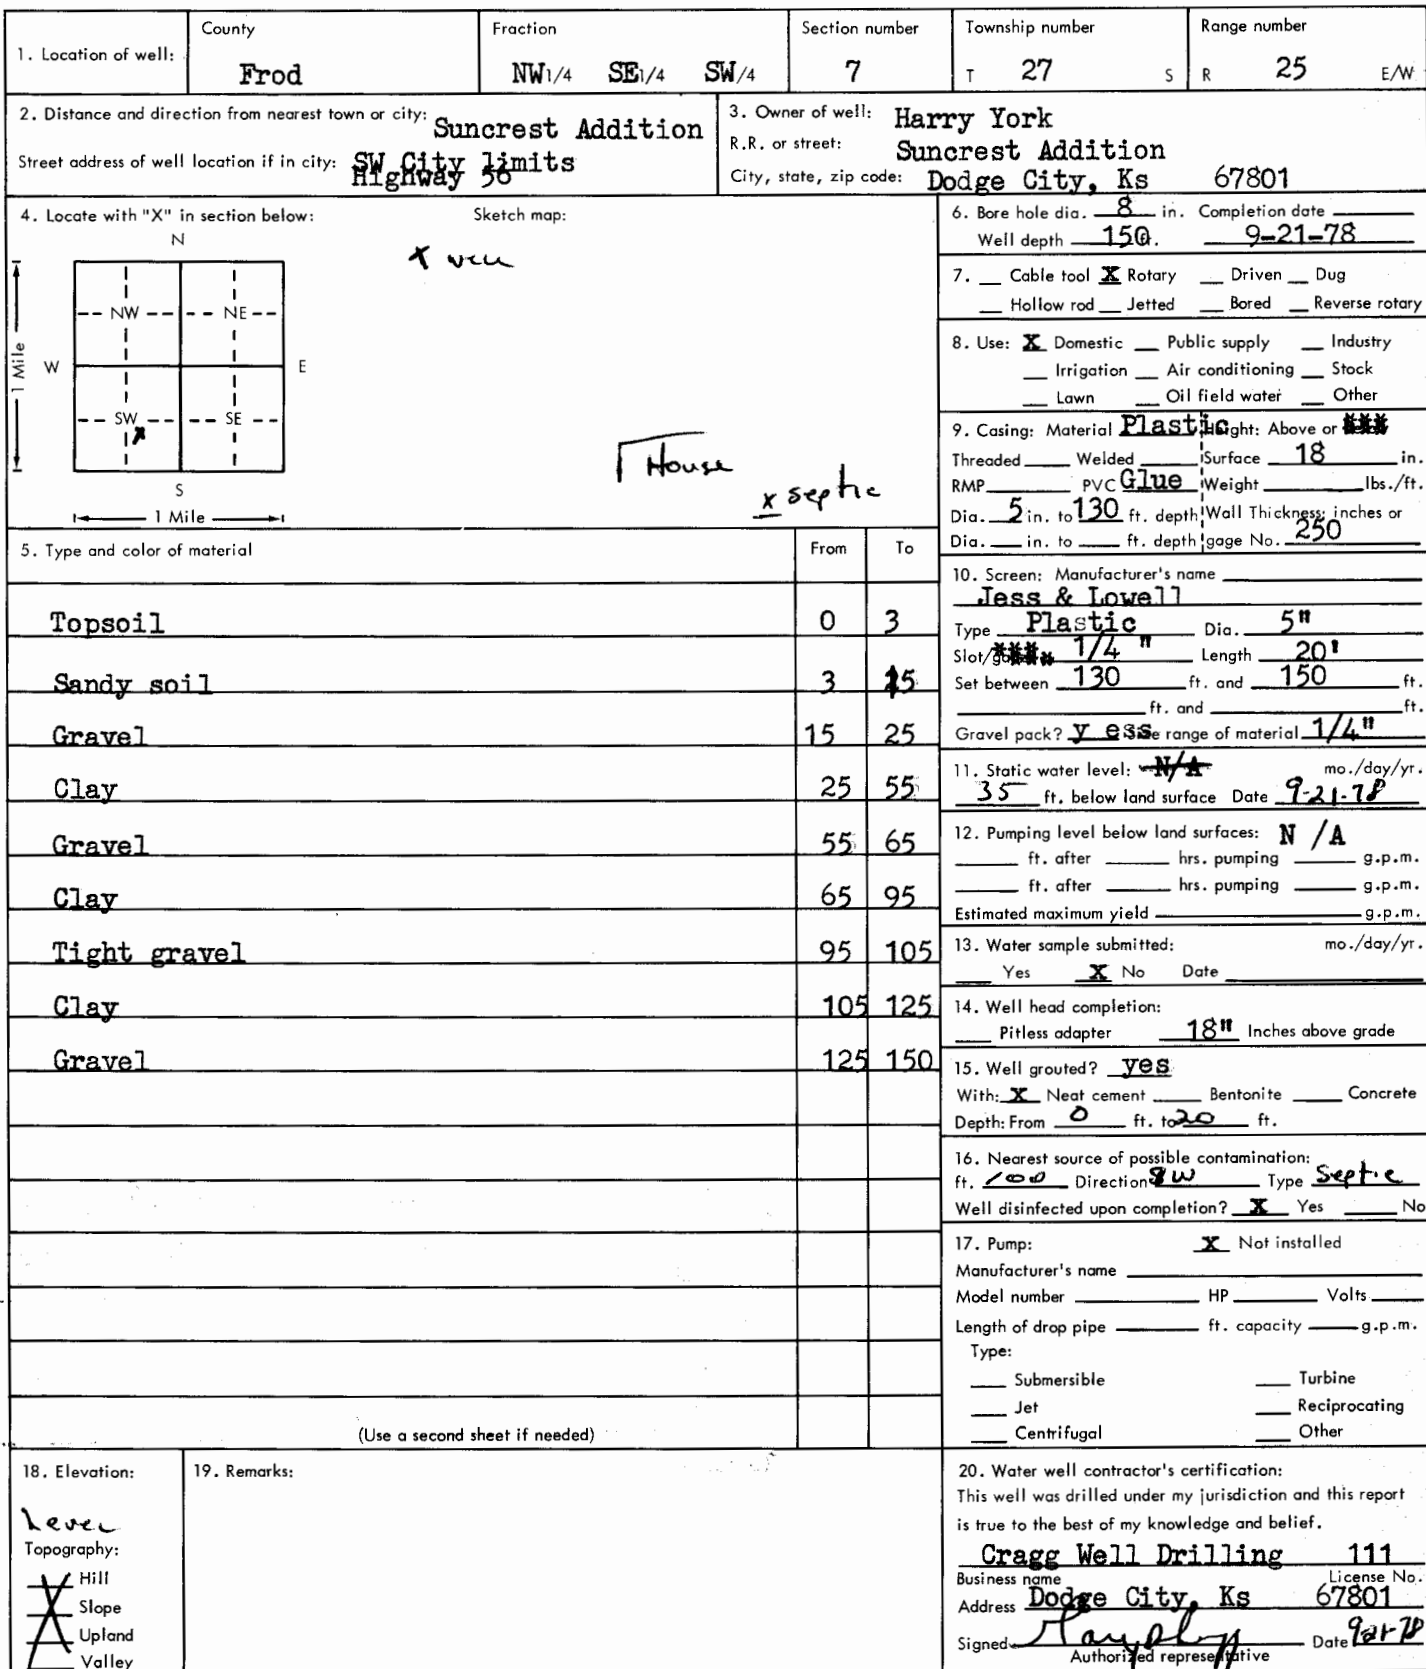 1. Location of well:
County
Frod
Fraction
NW1/4 SE1/4 SW/4
Section number
7
Township number
T 27 S
Range number
R 25 E/W
2. Distance and direction from nearest town or city: Suncrest Addition
Street address of well location if in city: SW City limits
Highway 56
3. Owner of well: Harry York
R.R. or street: Suncrest Addition
City, state, zip code: Dodge City, Ks 67801
4. Locate with "X" in section below:
Sketch map:
N
NW NE
W E
SW SE
X
S
1 Mile
1 Mile
X well
House
x septic
5. Type and color of material From To
Topsoil 0 3
Sandy soil 3 15
Gravel 15 25
Clay 25 55
Gravel 55 65
Clay 65 95
Tight gravel 95 105
Clay 105 125
Gravel 125 150
(Use a second sheet if needed)
6. Bore hole dia. 8 in. Completion date
Well depth 150. 9-21-78
7. Cable tool X Rotary Driven Dug
Hollow rod Jetted Bored Reverse rotary
8. Use: X Domestic Public supply Industry
Irrigation Air conditioning Stock
Lawn Oil field water Other
9. Casing: Material Plastic Height: Above or
Threaded Welded Surface 18 in.
RMP PVC Glue Weight lbs./ft.
Dia. 5 in. to 130 ft. depth Wall Thickness: inches or
Dia. in. to ft. depth gage No. 250
10. Screen: Manufacturer's name
Jess & Lowell
Type Plastic Dia. 5"
Slot/ 1/4 " Length 20'
Set between 130 ft. and 150 ft.
ft. and ft.
Gravel pack? y es range of material 1/4"
11. Static water level: N/A mo./day/yr.
35 ft. below land surface Date 9-21-78
12. Pumping level below land surfaces: N /A
ft. after hrs. pumping g.p.m.
ft. after hrs. pumping g.p.m.
Estimated maximum yield g.p.m.
13. Water sample submitted: mo./day/yr.
Yes X No Date
14. Well head completion:
Pitless adapter 18" Inches above grade
15. Well grouted? yes
With: X Neat cement Bentonite Concrete
Depth: From 0 ft. to 20 ft.
16. Nearest source of possible contamination:
ft. 100 Direction SW Type Septic
Well disinfected upon completion? X Yes No
17. Pump: X Not installed
Manufacturer's name
Model number HP Volts
Length of drop pipe ft. capacity g.p.m.
Type:
Submersible Turbine
Jet Reciprocating
Centrifugal Other
18. Elevation:
Level
Topography:
Hill
Slope
Upland
Valley
19. Remarks:
20. Water well contractor's certification:
This well was drilled under my jurisdiction and this report
is true to the best of my knowledge and belief.
Cragg Well Drilling 111
Business name License No.
Address Dodge City, Ks 67801
Signed Date 9-21-78
Authorized representative